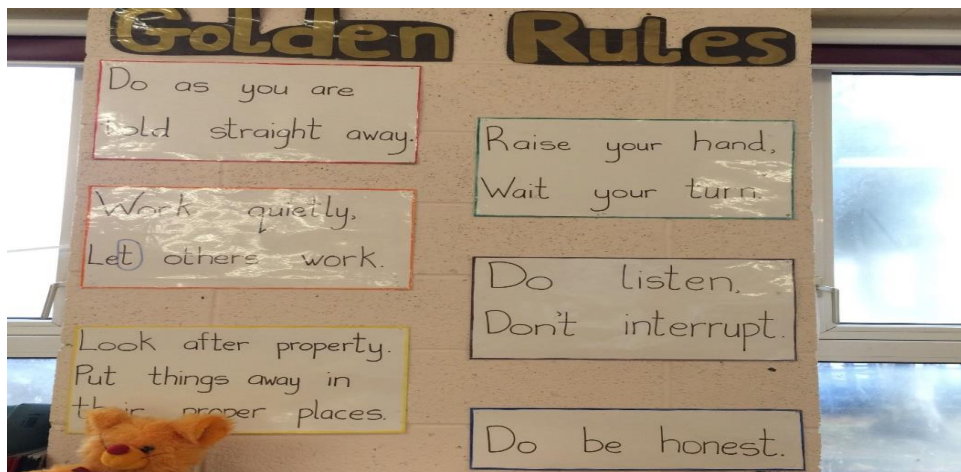 Golden Rules
Do as you are
told straight away.
Work quietly,
Let others work.
Look after property.
Put things away in
their proper places.
Raise your hand,
Wait your turn.
Do listen,
Don't interrupt.
Do be honest.